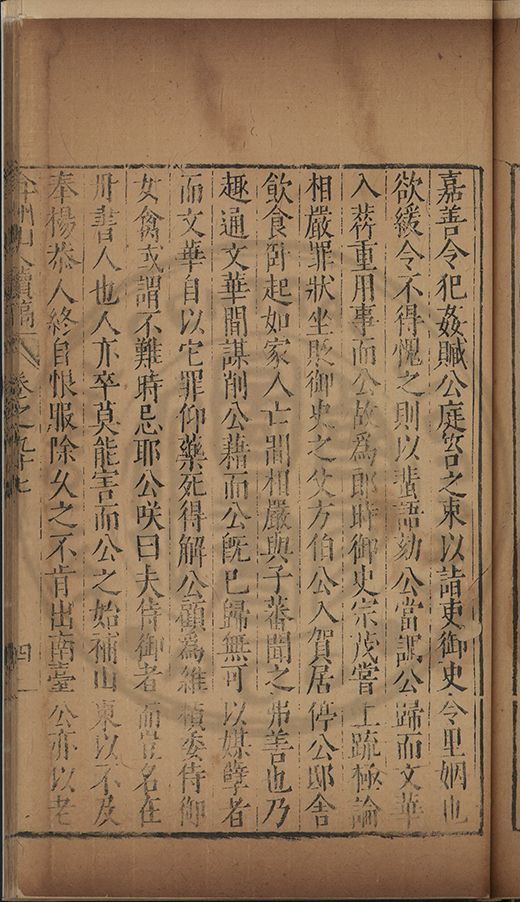 嘉善令犯姦贓公庭笞之東以請吏御史令里姻也
欲緩令不得愧之則以蜚語劾公當謫公歸而文華
入莽重用事而公故為郎時御史宗茂嘗上疏極論
相嚴罪狀坐貶御史之父方伯公入賀居停公邸舍
飲食卧起如家人亡間相嚴與子蕃聞之弗善也乃
趣通文華間謀削公藉而公旣已歸無可以媒孽者
而文華自以它罪仰藥死得解公顧為維楨委侍御
女禽或謂不難時忌耶公咲曰夫侍御者而豈名在
冊書人也人亦卒莫能害而公之始補山東以不及
奉楊恭人終自恨服除久之不肯出南臺公亦以老
弇州山人續稿 卷之九十七 四